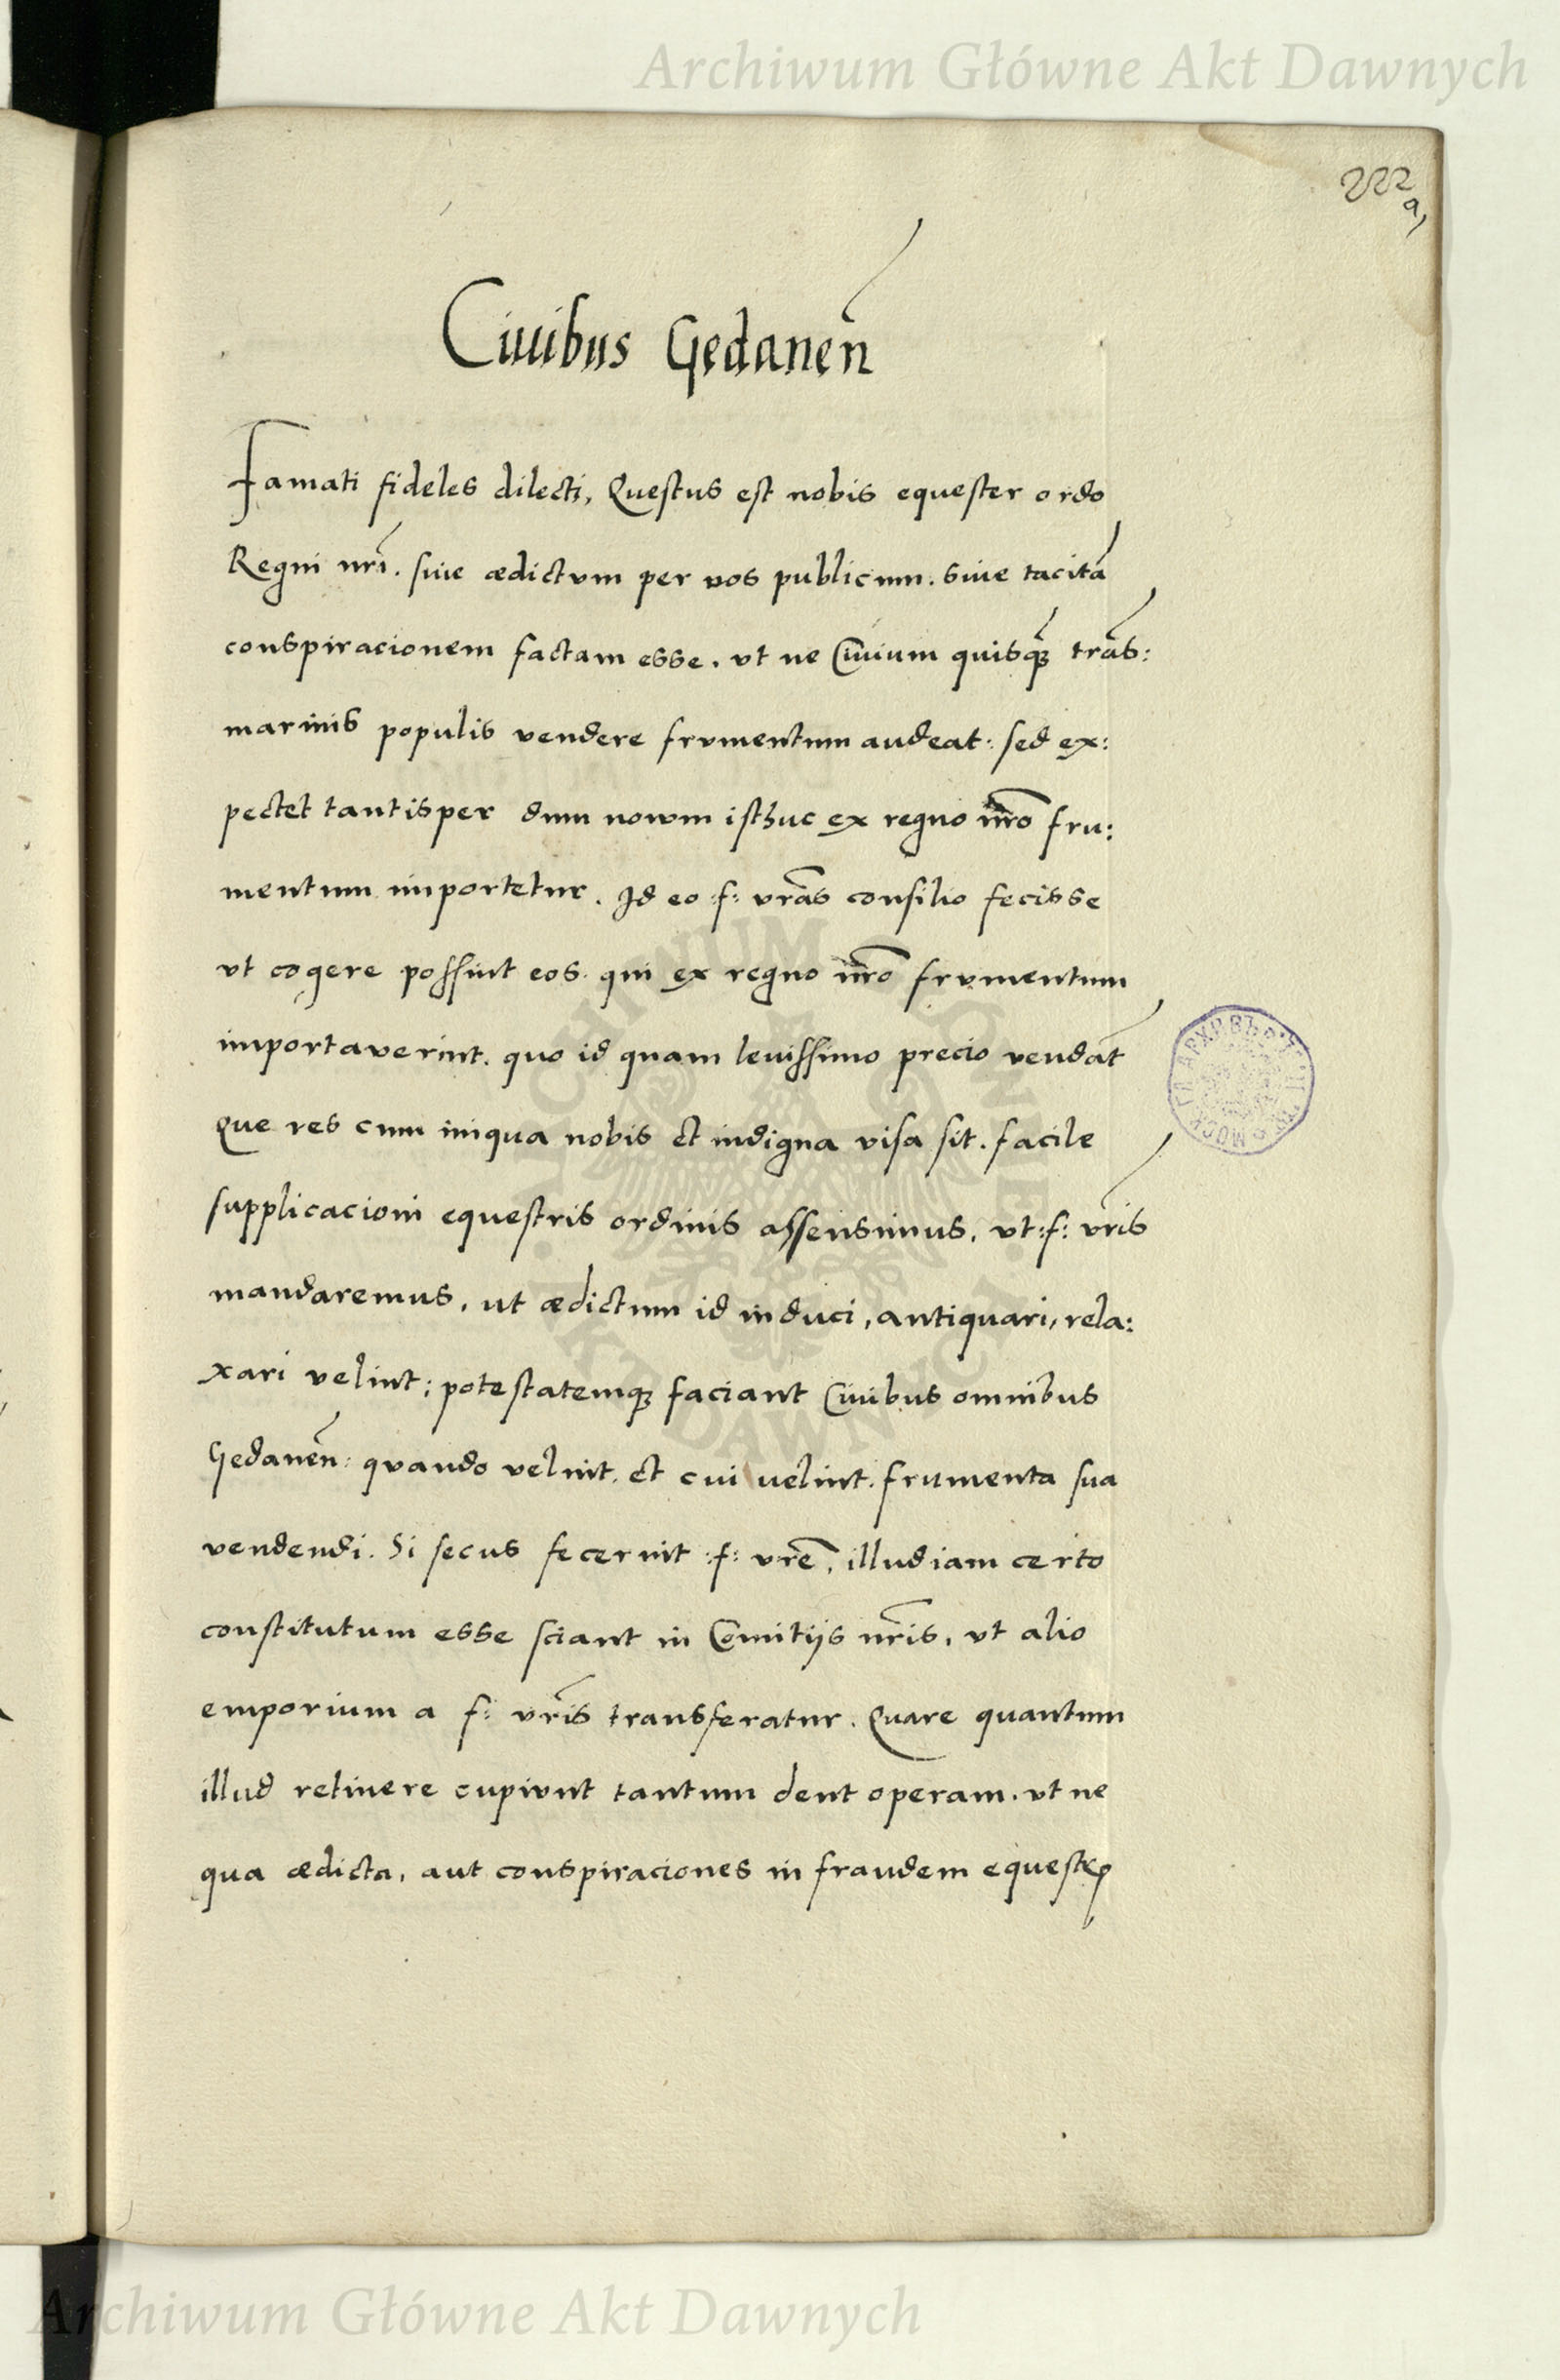 Archiwum Główne Akt Dawnych
222
a)
Ciuibus Gedaneñ
Famati fideles dilecti, Questus est nobis equester ordo
Regni nrī. siue ædictvm per vos publicum. siue tacitā
conspiracionem factam esse. vt ne Ciuium quisqꝫ trās:
marinis populis vendere frvmentum audeat: sed ex:
pectet tantisper dum novvm isthuc ex regno nr̄o fru:
mentum importetur. Id eo :f: vrās consilio fecisse
vt cogere possint eos. qui ex regno nr̄o frvmentum
importaverint. quo id quam leuissimo precio vendāt
Que res cum iniqua nobis et indigna visa sit. facile
supplicacioni equestris ordinis assensimus, vt :f: vrīs
mandaremus, ut ædictum id induci, antiquari, rela:
xari velint; potestatemqꝫ faciant Ciuibus omnibus
Gedaneñ: quando velint, et cui uelint. frumenta sua
vendendi. Si secus fecerint :f: vrē, illud iam certo
constitutum esse sciant in Comitijs nrīs, vt alio
emporium a f: vrīs transferatur. Quare quantum
illud retinere cupivnt tantum dent operam. vt ne
qua ædicta, aut conspiraciones in fraudem equestꝝ
ARCHIWUM GŁÓWNE AKT DAWNYCH
Archiwum Główne Akt Dawnych